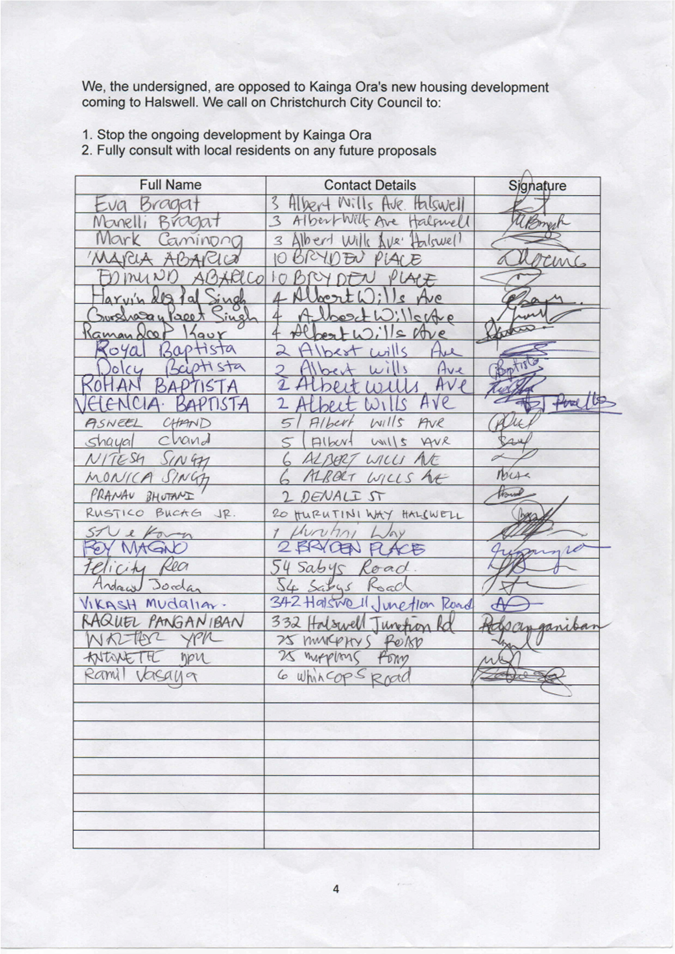 We, the undersigned, are opposed to Kainga Ora's new housing development
coming to Halswell. We call on Christchurch City Council to:
1. Stop the ongoing development by Kainga Ora
2. Fully consult with local residents on any future proposals
Full Name Contact Details Signature
Eva Bragat 3 Albert Wills Ave Halswell
Manelli Bragat 3 Albert Wills Ave Halswell
Mark Caminong 3 Albert Wills Ave Halswell
MARIA ABARICO 10 BRYDEN PLACE
EDMUND ABARICO 10 BRYDEN PLACE
Singh 4 Albert Wills Ave
Singh 4 Albert Wills Ave
Ramandeep Kaur 4 Albert Wills Ave
Royal Baptista 2 Albert Wills Ave
Dolcy Baptista 2 Albert Wills Ave Baptista
ROHAN BAPTISTA 2 Albert Wills Ave
VELENCIA BAPTISTA 2 Albert Wills Ave
ASNEEL CHAND 51 Albert Wills AVR
Shayal Chand 51 Albert Wills AVR
NITESH SINGH 6 ALBERT WILLS AVE
MONICA SINGH 6 ALBERT WILLS AVE
PRANAV BHUTANI 2 DENALI ST
RUSTICO BUCAG JR. 20 HURUTINI WAY HALSWELL
1 Hurutini Way
MAGNO 2 BRYDEN PLACE
Felicity Rea 54 Sabys Road.
Andrew Jordan 54 Sabys Road
VIKASH Mudaliar. 342 Halswell Junction Road
RAQUEL PANGANIBAN 332 Halswell Junction Rd Rdpanganiban
WALTER 25 MURPHYS ROAD
25 MURPHYS ROAD
Ramil Vasaya 6 Whincops Road
4